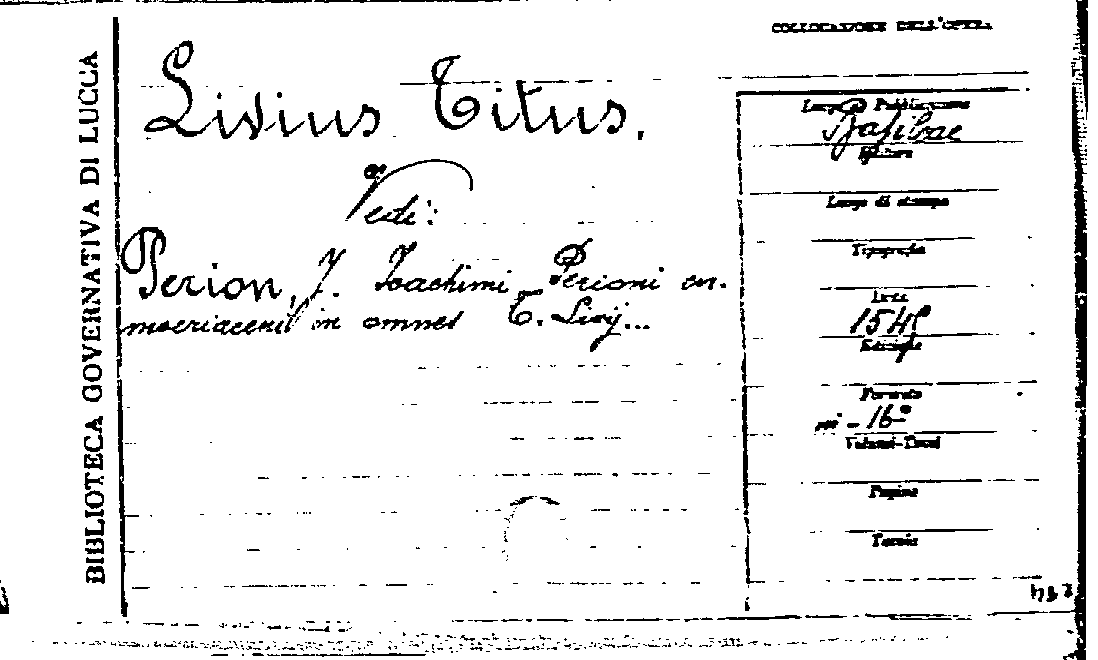 BIBLIOTECA GOVERNATIVA DI LUCCA
Livius Titus.
Vedi:
Perion, J. Joachimi Perioni cor-
moeriaceni in omnes T. Livij...
COLLOCAZIONE DELL'OPERA
Luogo di Pubblicazione
Basileae
Editore
Luogo di stampa
Tipografia
Data
Edizione
Formato
in-16°
Volumi-Tomi
Pagine
Tavole